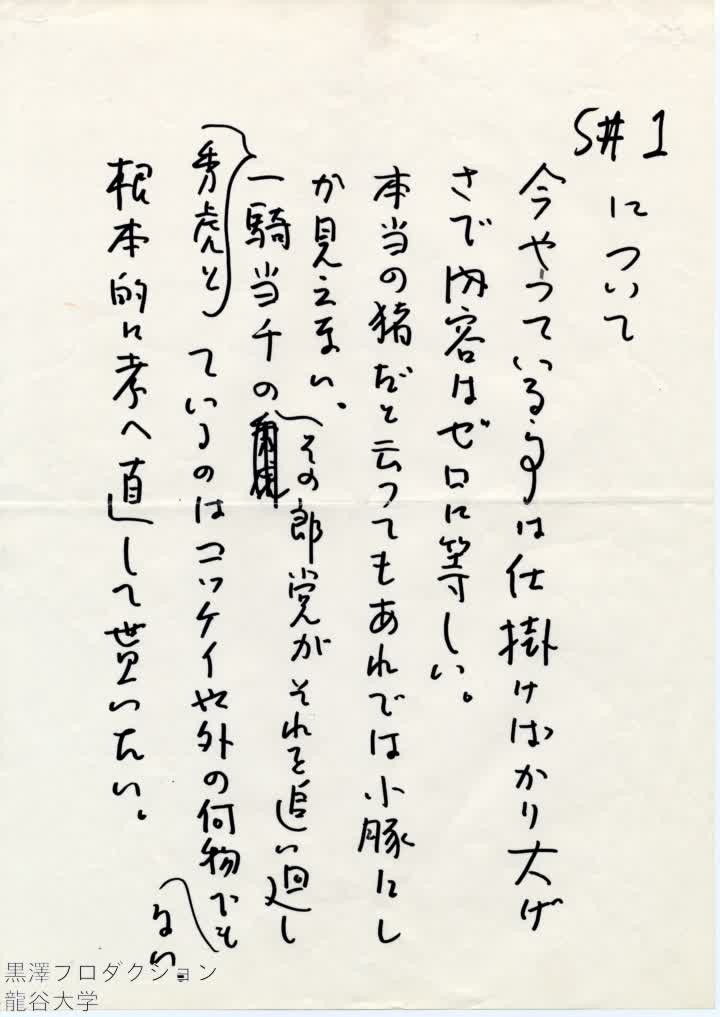 S#1
について
今やっている事は仕掛けばかり大げ
さで内容はゼロに等しい。
本当の猪だと云ってもあれでは小豚にし
か見えない。
一騎当千の
秀虎と
その郎党がそれを追い回し
ているのはコッケイや外の何物でも
ない
根本的に考へ直して貰いたい。
黒澤プロダクション
龍谷大学